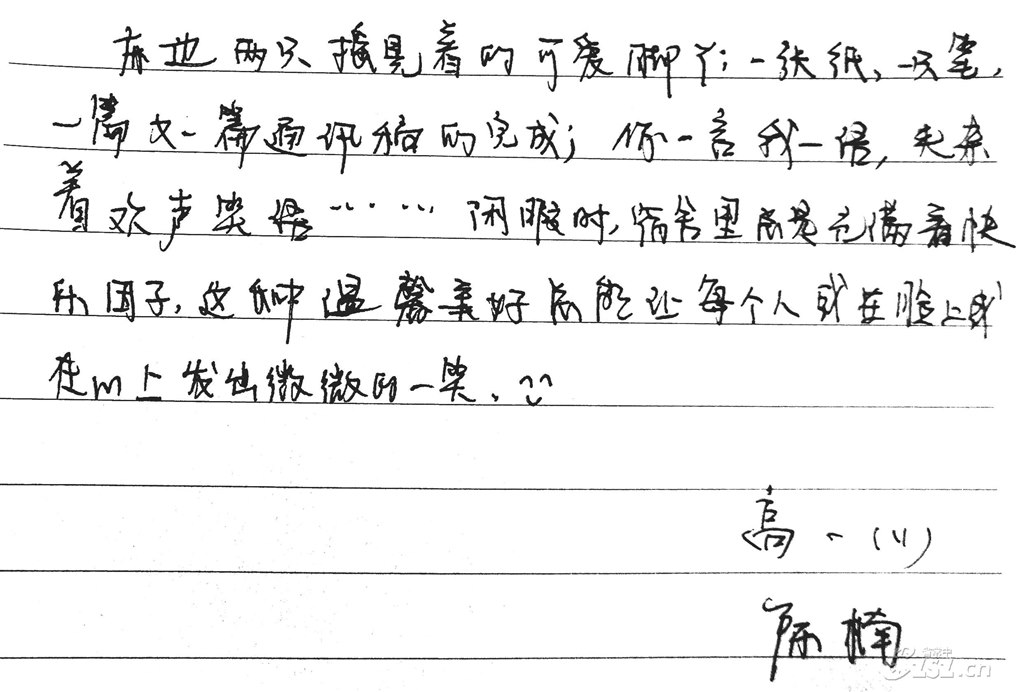 床边两只摇晃着的可爱脚丫；一张纸，一只笔，
一篇又一篇通讯稿的完成；你一言我一语，夹杂
着欢声笑语…… 闲暇时，宿舍里总是充满着快
乐因子，这种温馨美好总能让每个人或在脸上或
在心上发出微微的一笑。
高一（11）
楠